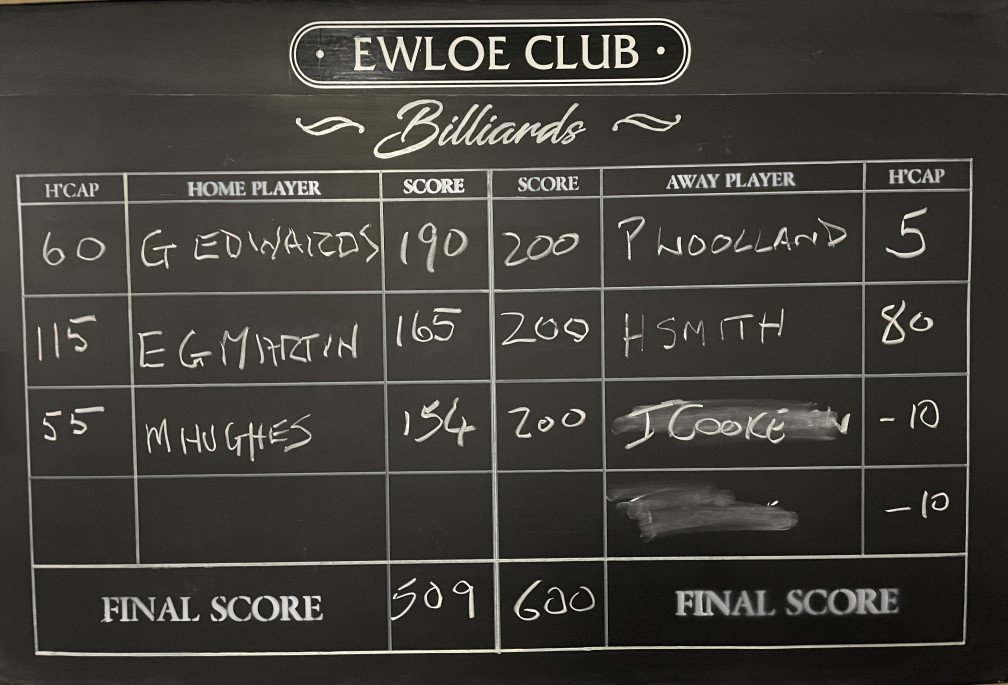 · EWLOE CLUB ·
Billiards
H'CAP HOME PLAYER SCORE SCORE AWAY PLAYER H'CAP
60 G EDWARDS 190 200 P WOOLLAND 5
115 E G MARTIN 165 200 H SMITH 80
55 M HUGHES 154 200 J COOKE -10
-10
FINAL SCORE 509 600 FINAL SCORE